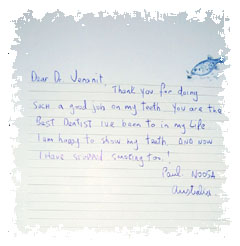 Dear Dr Venanit.
Thank you for doing
such a good job on my teeth. You are the
Best Dentist I've been to in my life
I am happy to show my teeth, AND NOW
I have stopped smoking too!
Paul NOOSA
Australia